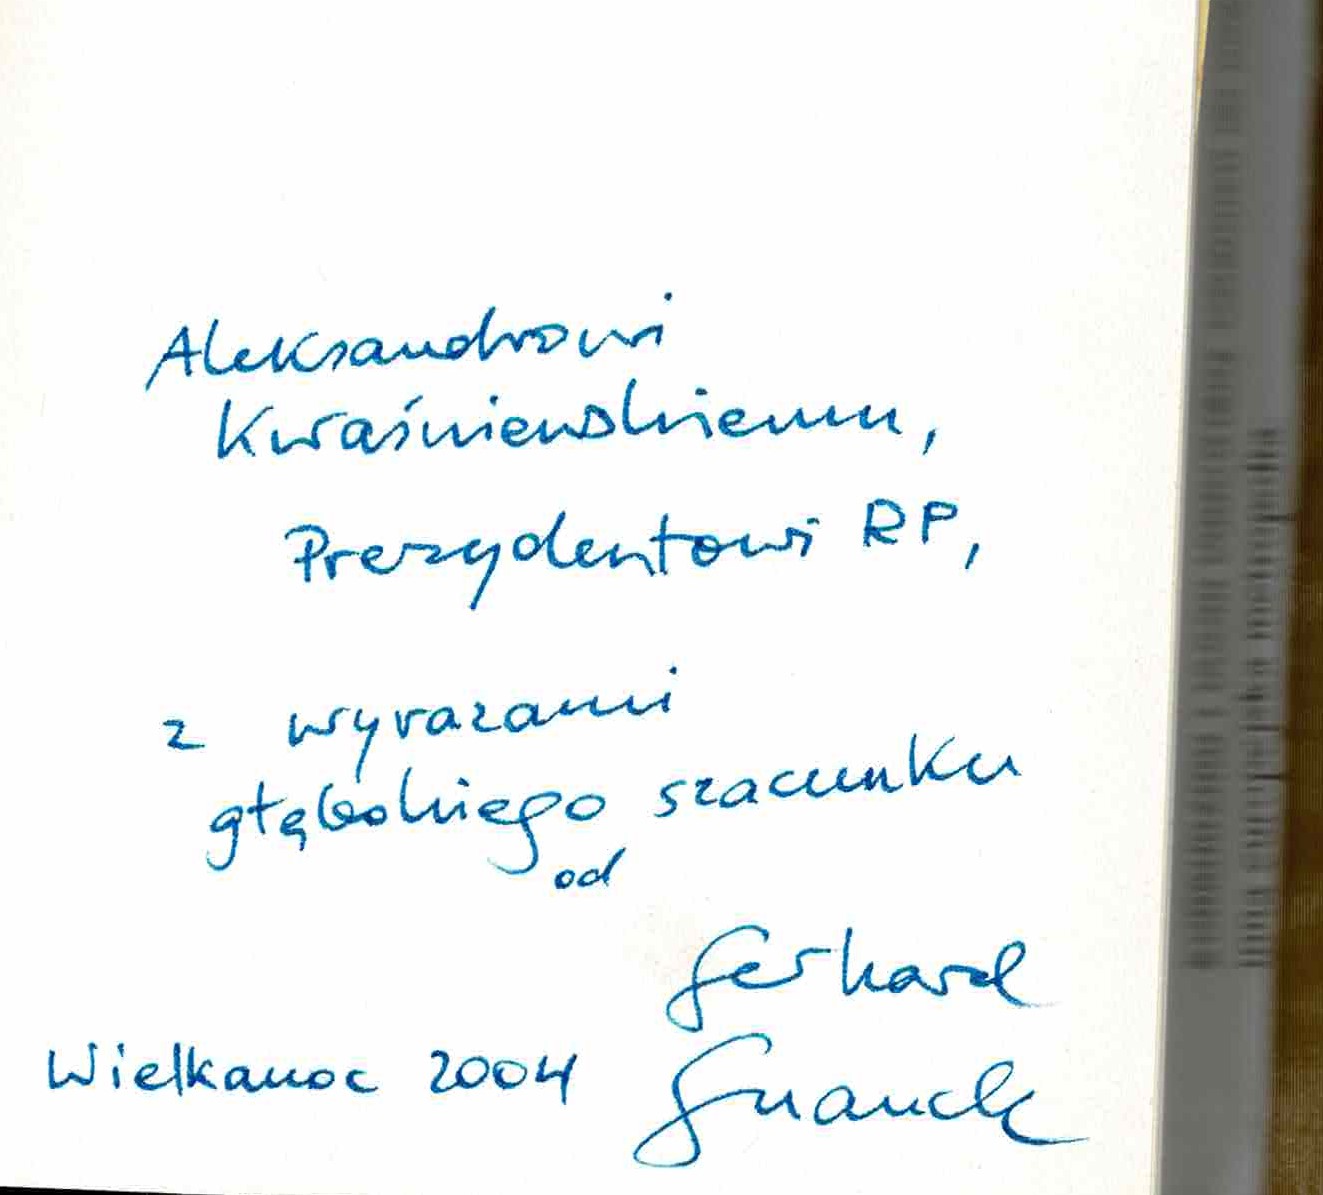 Aleksandrowi
Kwaśniewskiemu,
Prezydentowi RP,
z wyrazami
głębokiego szacunku
od
Gerhard
Wielkanoc 2004 Gnauck